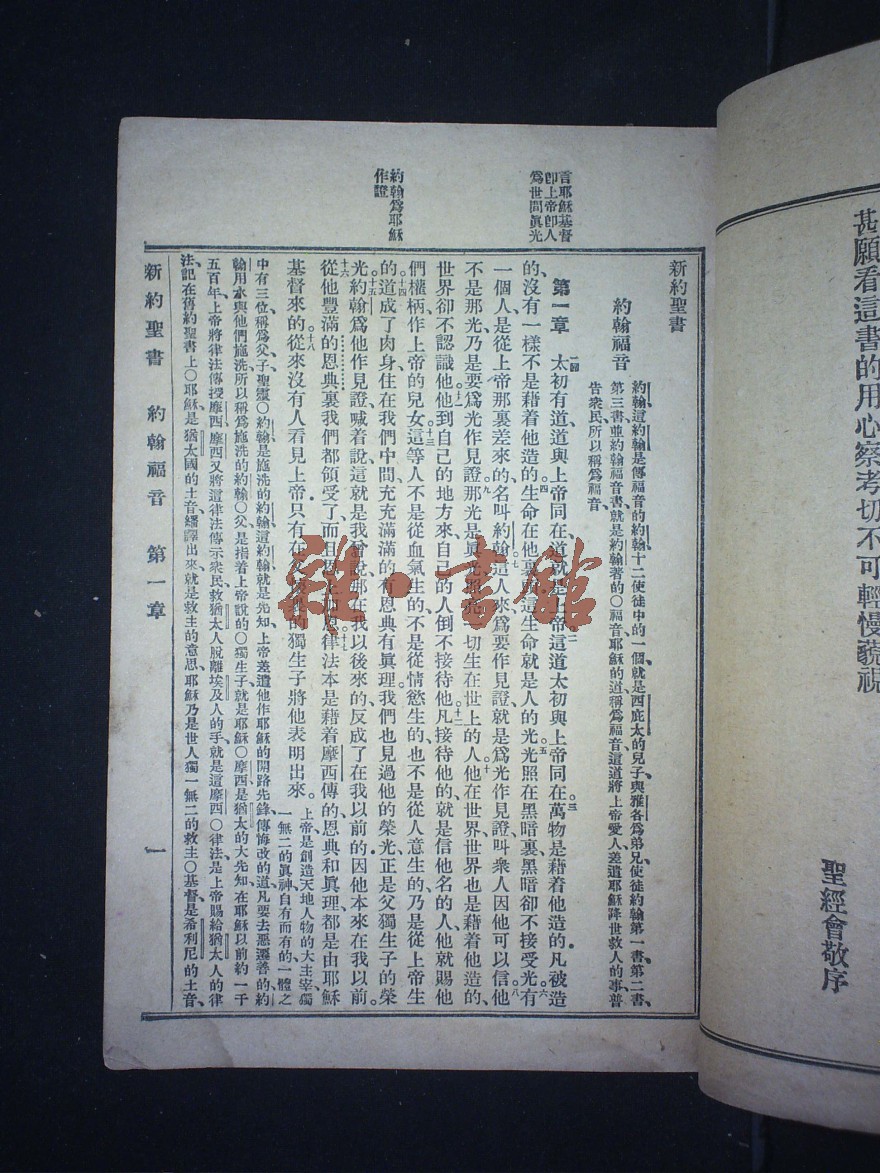 甚願看這書的用心察考切不可輕慢藐視
聖經會敬序
言耶穌基督
卽上帝卽人
爲世間眞光
約翰爲耶穌
作證
新約聖書
約翰福音
約翰、這約翰是傳福音的約翰、十二使徒中的一個、就是西庇太的兒子、與雅各爲弟兄、使徒約翰第一書、第二書、
第三書、並約翰福音書、就是約翰著的○福音、耶穌的道、稱爲福音、這道將上帝愛人、差遣耶穌降世救人的事、普
告衆民、所以稱爲福音、
第一章 一太初有道、道與上帝同在、道就是上帝。二這道太初與上帝同在。三萬物是藉着他造的、凡被造
的、沒有一樣不是藉着他造的。四生命在他裏
一個人、是從上帝那裏差來的、名叫約翰。七這人來、爲要作見證、就是爲光作見證、叫衆人因他可以信。八他
不是那光、乃是要爲光作見證。九那光是眞光、
世界卻不認識他。十一他到自己的地方來、自己的人倒不接待他。十二凡接待他的、就是信他名的人、他就賜他
們權柄、作上帝的兒女。十三這等人不是從血氣生的、不是從情慾生的、也不是從人意生的、乃是從上帝生
的。十四道成了肉身、住在我們中間、充充滿滿的有恩典有眞理、我們也見過他的榮光、正是父獨生子的榮
光。十五約翰爲他作見證、喊着說、這就是我曾說、那在我以後來的、反成了在我以前的、因他本來在我以前。
十六從他豐滿的恩典裏、我們都領受了、而且恩上加恩。十七律法本是藉着摩西傳的、恩典和眞理、都是由耶穌
基督來的。十八從來沒有人看見上帝、只有在父懷裏的獨生子、將他表明出來。
上帝、是創造天地人物的大主宰、獨
一無二的眞神、自有而有的、一體之
中有三位、稱爲父子聖靈○約翰、是施洗的約翰、這約翰就是先知、上帝差遣他作耶穌的開路先鋒、傳悔改的道、凡要去惡遷善的、約
翰用水與他們施洗、所以稱爲施洗的約翰○父、是指着上帝說的○獨生子、就是耶穌○摩西、是猶太的大先知、在耶穌以前約一千
五百年、上帝將律法傳授摩西、摩西又將這律法傳示衆民、救猶太人脫離埃及人的手、就是這摩西○律法、是上帝賜給猶太人的律
法、記在舊約聖書上○耶穌、是猶太國的土音、繙譯出來、就是救主的意思、耶穌乃是世人獨一無二的救主○基督、是希利尼的土音、
新約聖書 約翰福音 第一章 一
雜·書館